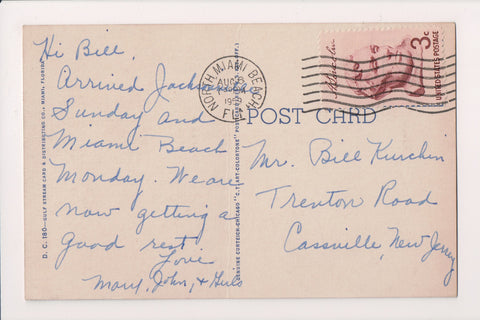 Hi Bill,
Arrived Jackson
Sunday and
Miami Beach
Monday. We are
now getting a
good rest
Love
Mary, John, & Girls
POST CARD
Mr. Bill
Trenton Road
Cassville, New Jersey
NORTH MIAMI BEACH
AUG
FLA
3c
UNITED STATES POSTAGE
D. C. 180—GULF STREAM CARD & DISTRIBUTING CO., MIAMI, FLORIDA
GENUINE CURTEICH-CHICAGO "C. T. ART-COLORTONE" POST CARD